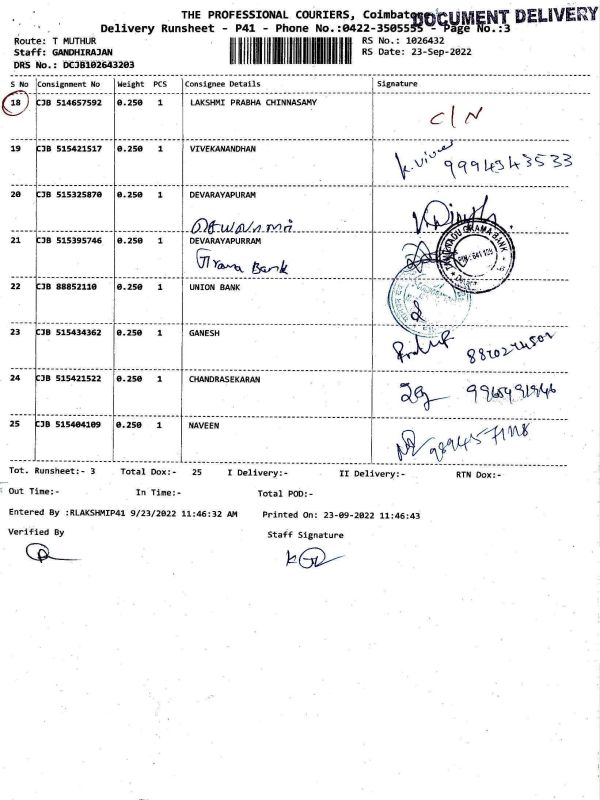 THE PROFESSIONAL COURIERS, Coimbatore
DOCUMENT DELIVERY
Delivery Runsheet - P41 - Phone No.:0422-3505555 - Page No.:3
Route: T MUTHUR
RS No.: 1026432
Staff: GANDHIRAJAN
RS Date: 23-Sep-2022
DRS No.: DCJB102643203
S No Consignment No Weight PCS Consignee Details Signature
18 CJB 514657592 0.250 1 LAKSHMI PRABHA CHINNASAMY C/N
19 CJB 515421517 0.250 1 VIVEKANANDHAN 9994343533
20 CJB 515325870 0.250 1 DEVARAYAPURAM
21 CJB 515395746 0.250 1 DEVARAYAPURRAM
Grama Bank
GRAMA BANK
22 CJB 88852110 0.250 1 UNION BANK
23 CJB 515434362 0.250 1 GANESH
24 CJB 515421522 0.250 1 CHANDRASEKARAN
25 CJB 515404109 0.250 1 NAVEEN
Tot. Runsheet:- 3 Total Dox:- 25 I Delivery:- II Delivery:- RTN Dox:-
Out Time:- In Time:- Total POD:-
Entered By :RLAKSHMIP41 9/23/2022 11:46:32 AM Printed On: 23-09-2022 11:46:43
Verified By Staff Signature